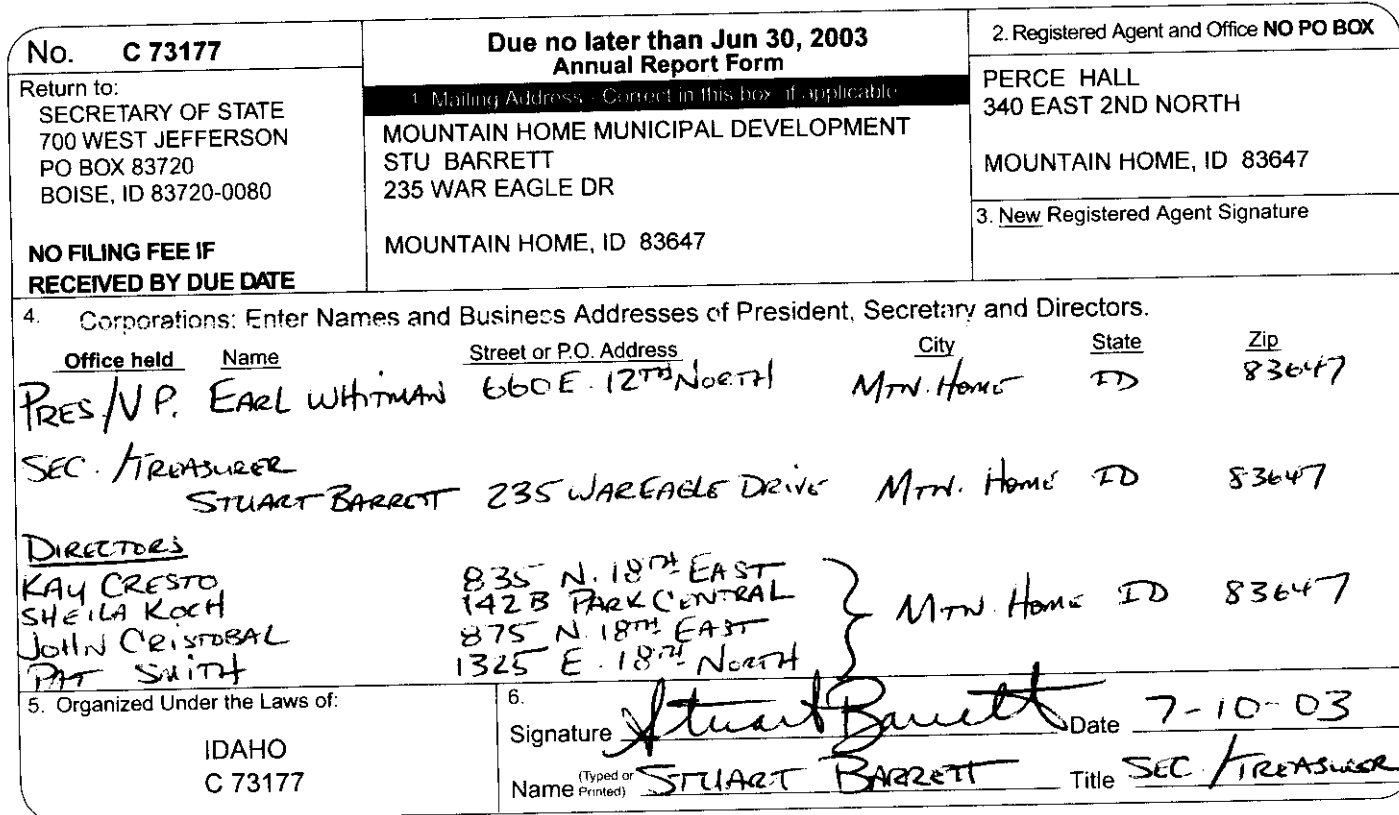 No. C 73177
Return to:
SECRETARY OF STATE
700 WEST JEFFERSON
PO BOX 83720
BOISE, ID 83720-0080
NO FILING FEE IF
RECEIVED BY DUE DATE
Due no later than Jun 30, 2003
Annual Report Form
1. Mailing Address - Correct in this box, if applicable
MOUNTAIN HOME MUNICIPAL DEVELOPMENT
STU BARRETT
235 WAR EAGLE DR
MOUNTAIN HOME, ID 83647
2. Registered Agent and Office NO PO BOX
PERCE HALL
340 EAST 2ND NORTH
MOUNTAIN HOME, ID 83647
3. New Registered Agent Signature
4. Corporations: Enter Names and Business Addresses of President, Secretary and Directors.
Office held Name Street or P.O. Address City State Zip
PRES/VP. EARL WHITMAN 660 E. 12TH NORTH MTN. HOME ID 83647
SEC. /TREASURER
STUART BARRETT 235 WAR EAGLE DRIVE MTN. Home ID 83647
DIRECTORS
KAY CRESTO 835 N. 18TH EAST
SHEILA KOCH 142 B PARK CENTRAL
JOHN CRISTOBAL 875 N. 18TH EAST
PAT SMITH 1325 E. 18TH NORTH
MTN. Home ID 83647
5. Organized Under the Laws of:
IDAHO
C 73177
6.
Signature Stuart Barrett Date 7-10-03
Name (Typed or Printed) STUART BARRETT Title SEC. /TREASURER